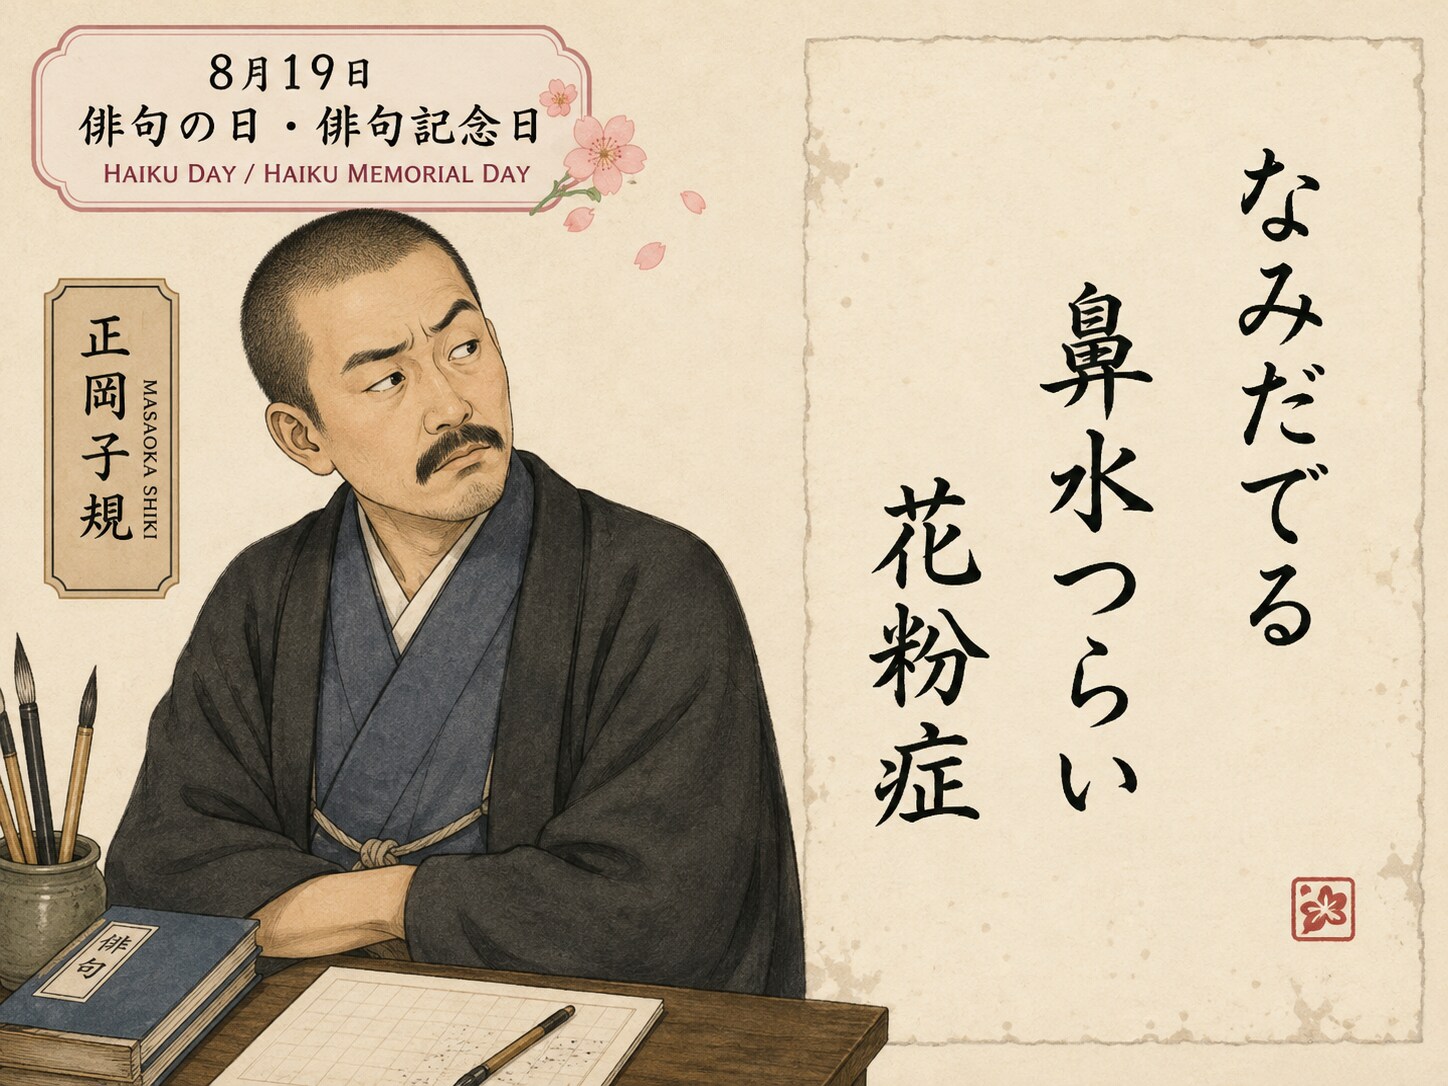 8月19日
俳句の日・俳句記念日
HAIKU DAY / HAIKU MEMORIAL DAY
正岡子規
MASAOKA SHIKI
なみだでる
鼻水つらい
花粉症
俳句